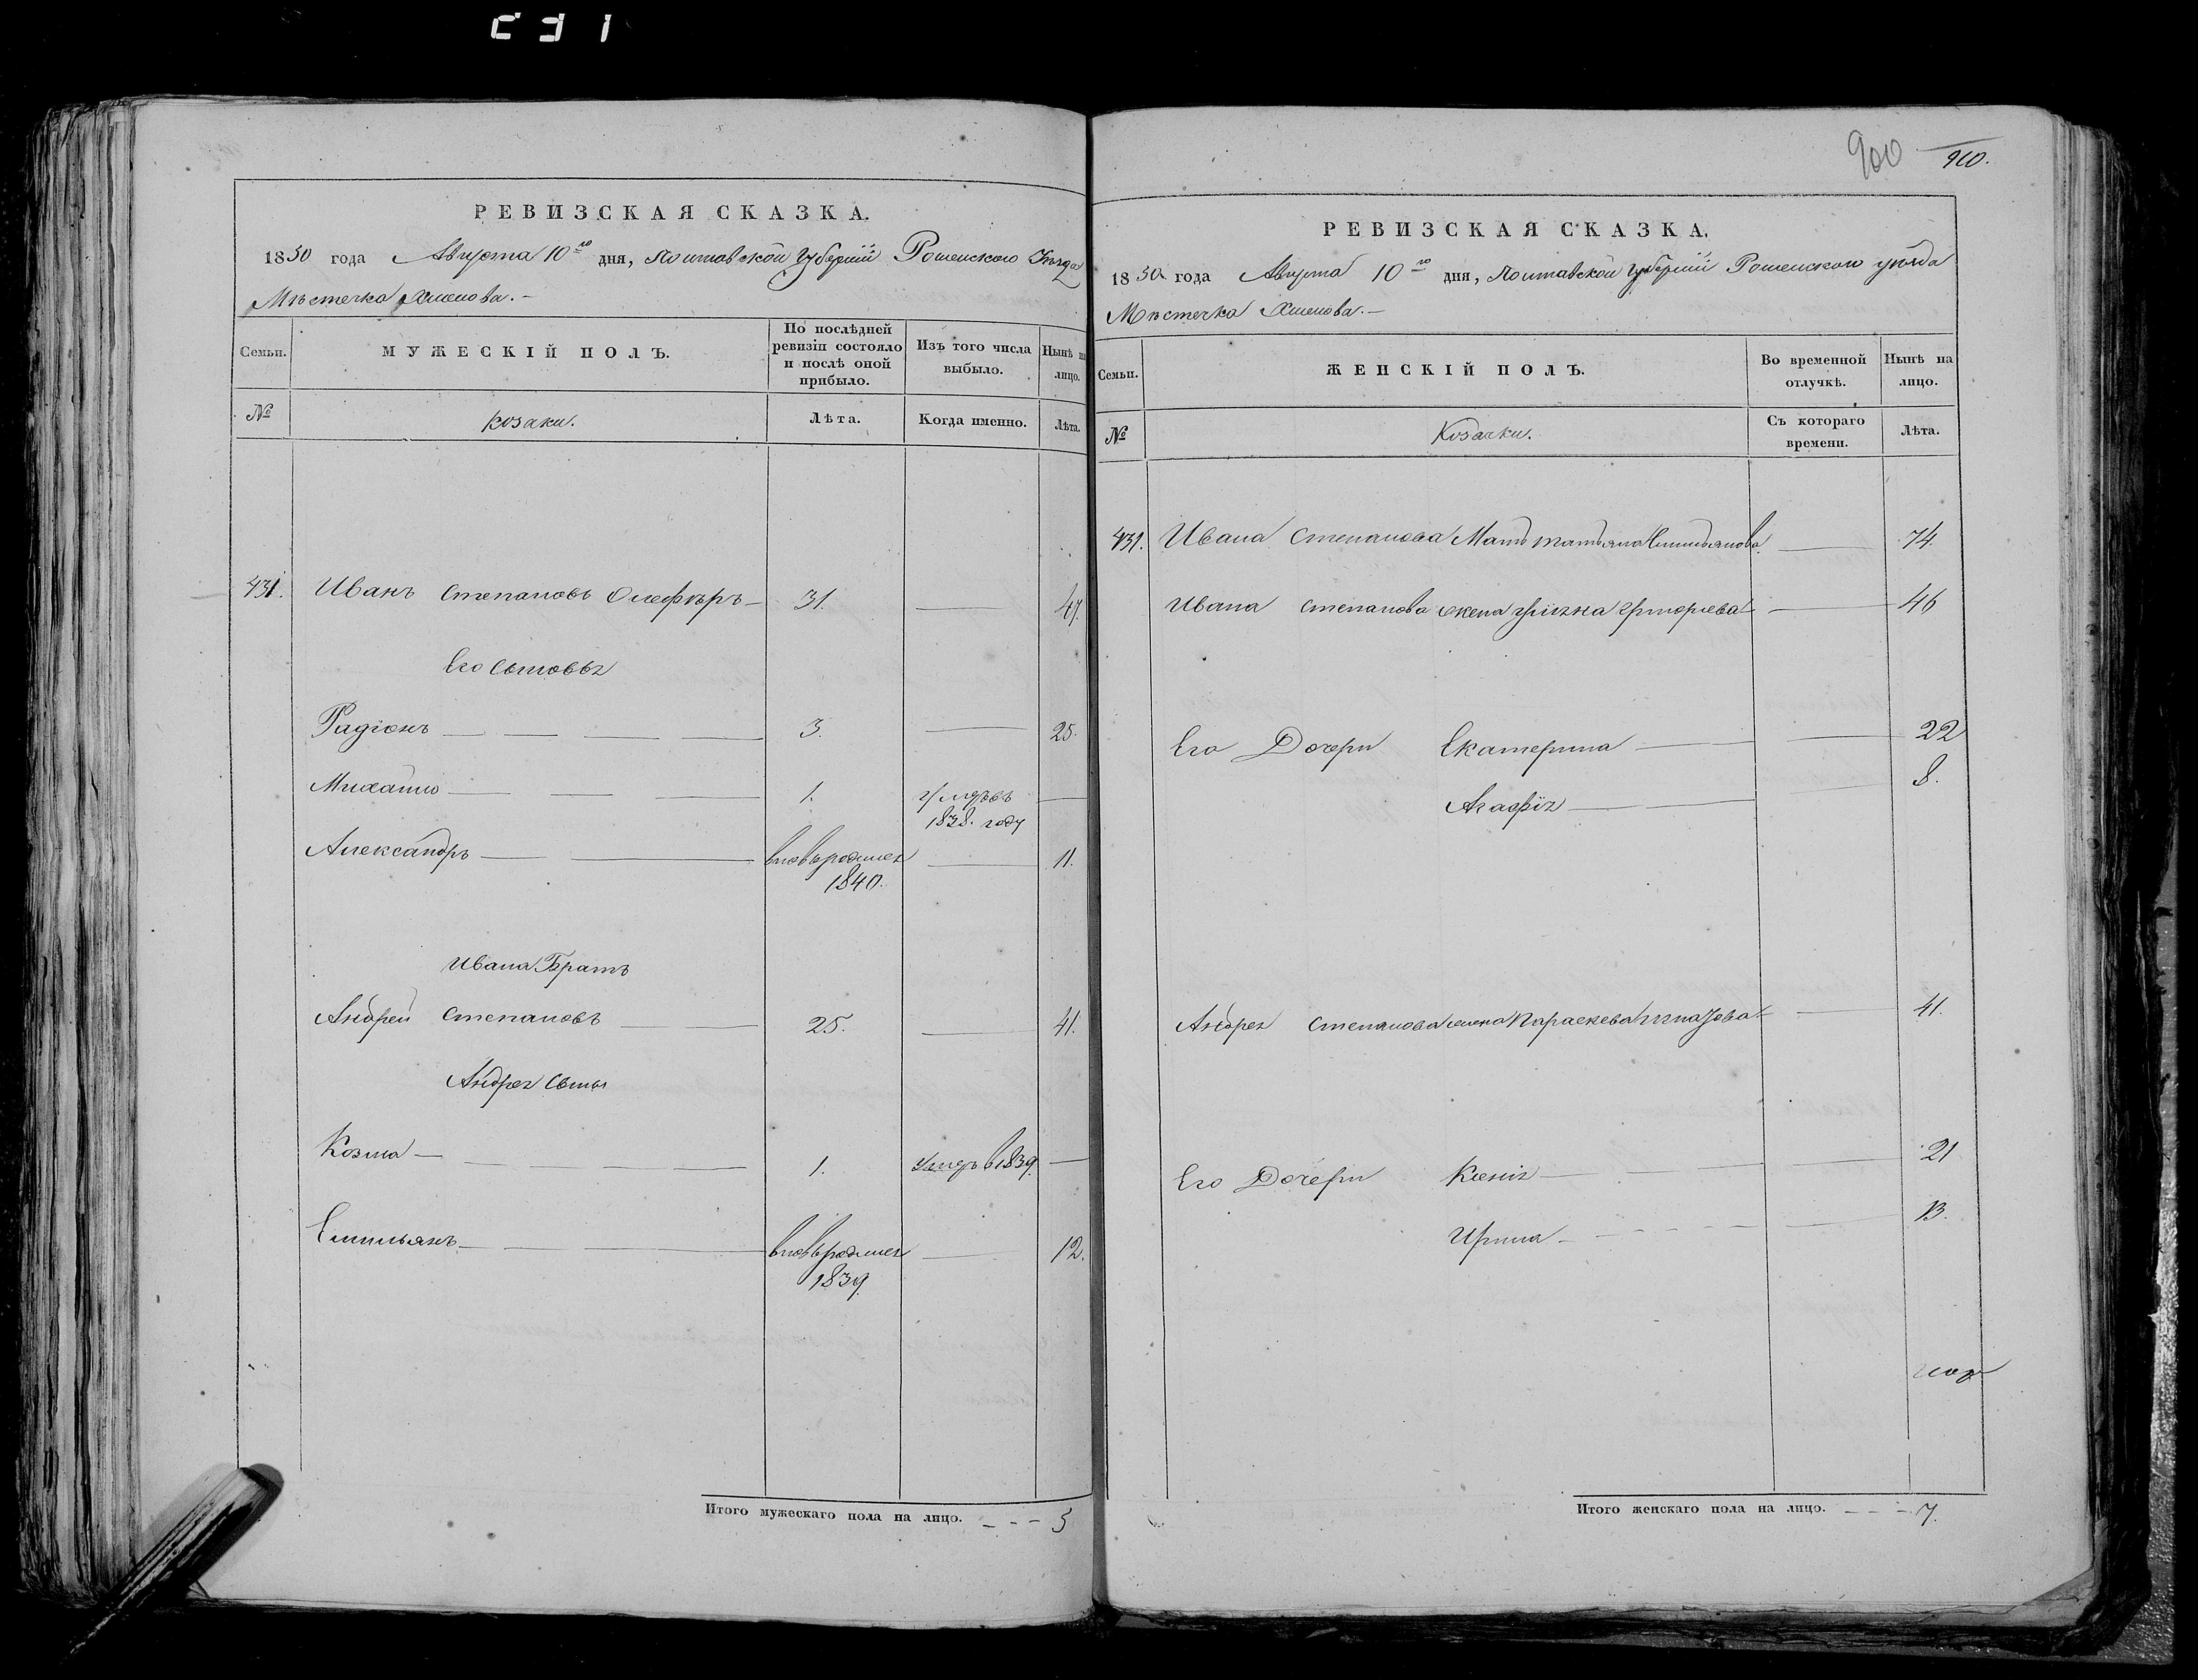 РЕВИЗСКАЯ СКАЗКА.
1850 года Августа 10го дня, Полтавской Губернiи Роменского Уѣзда
Мѣстечка Хмелова.
Семьи.
МУЖЕСКІЙ ПОЛЪ.
По послѣдней ревизіи состояло и послѣ оной прибыло.
Изъ того числа выбыло.
Нынѣ на лицо.
№
козаки.
Лѣта.
Когда именно.
Лѣта.
431. Иванъ Степановъ Олефѣръ 31. 47.
Его сыновья
Радіонъ 3. 25.
Михайло 1. умръ въ 1838. году
Александръ вновьрожден 1840. 11.
Ивана Братъ
Андрей Степановъ 25. 41.
Андрея сыны
Козма 1. умеръ в 1839.
Емильянъ вновьрожден 1839 12.
Итого мужескаго пола на лицо. 5
900 910.
РЕВИЗСКАЯ СКАЗКА.
1850 года Августа 10го дня, Полтавской губернiи Роменского уѣзда
Мѣстечка Хмелова.
Семьи.
ЖЕНСКІЙ ПОЛЪ.
Во временной отлучкѣ.
Нынѣ на лицо.
№
Козачки.
Съ котораго времени.
Лѣта.
431. Ивана Степанова Мать татьяна Емильянова 74.
Ивана Степанова жена Григорьева 46
Его Дочери Екатерина 22
Агафія 8.
Андрея Степанова жена Параскева 41.
Его Дочери Ксенія 21
Ирина 13.
Итого женскаго пола на лицо. 7.